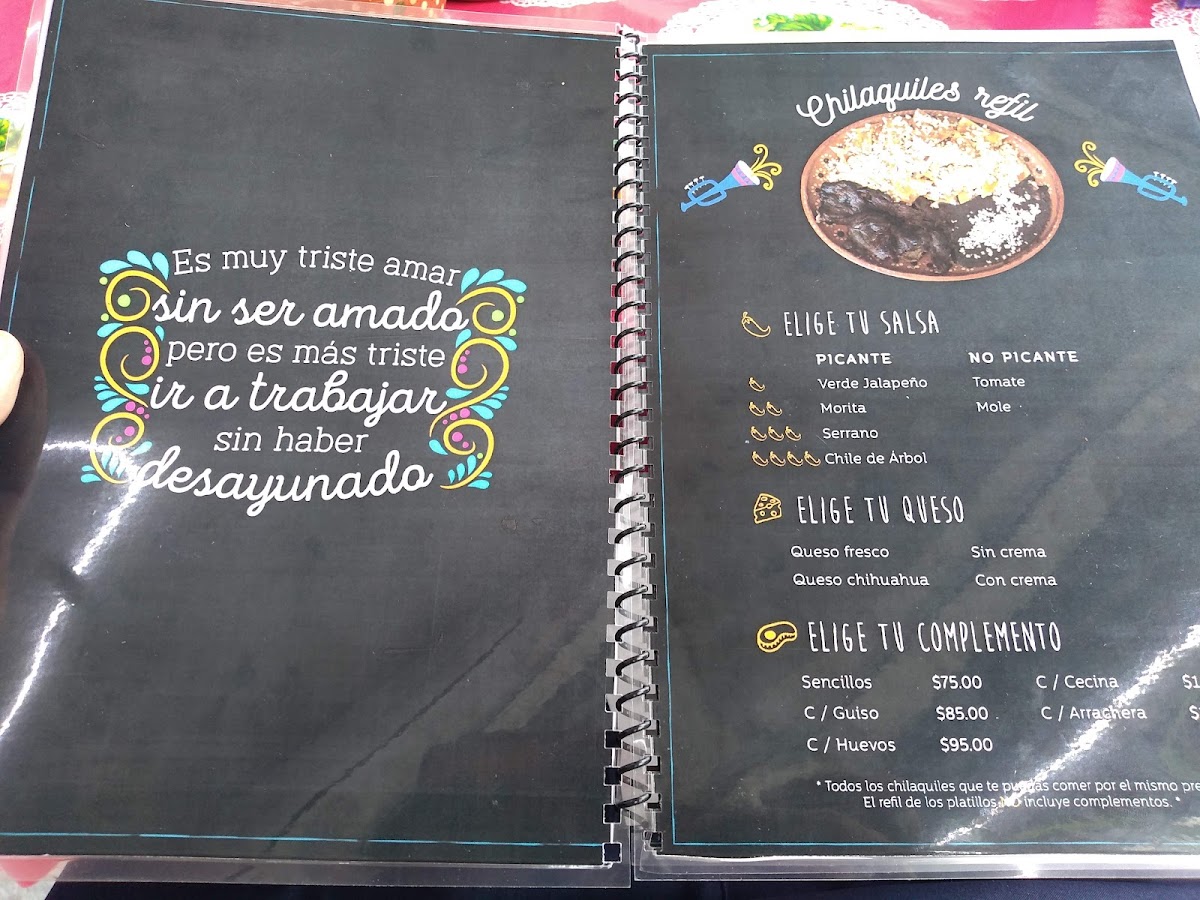 Es muy triste amar
sin ser amado
pero es más triste
ir a trabajar
sin haber
desayunado
Chilaquiles refil
ELIGE TU SALSA
PICANTE NO PICANTE
Verde Jalapeño Tomate
Morita Mole
Serrano
Chile de Árbol
ELIGE TU QUESO
Queso fresco Sin crema
Queso chihuahua Con crema
ELIGE TU COMPLEMENTO
Sencillos $75.00 C / Cecina
C / Guiso $85.00 C / Arrachera
C / Huevos $95.00
* Todos los chilaquiles que te puedas comer por el mismo
El refil de los platillos NO incluye complementos. *